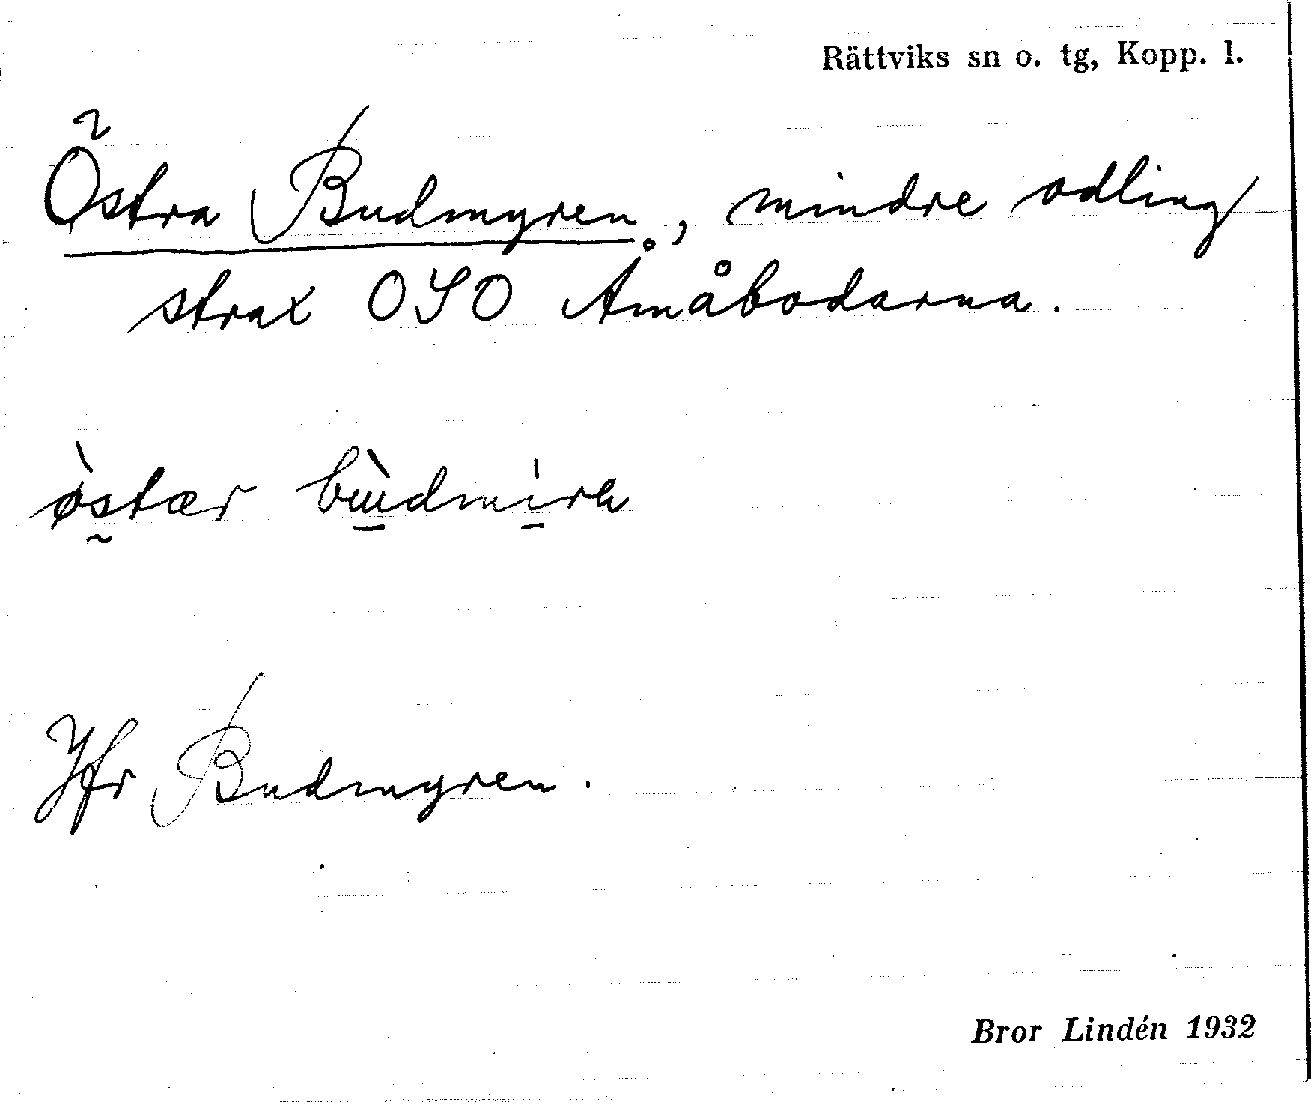 Rättviks sn o. tg, Kopp. l.
Östra Budmyren, mindre odling
strax OSO Åmåbodarna.
östær bùdmirn
Jfr Budmyren.
Bror Lindén 1932